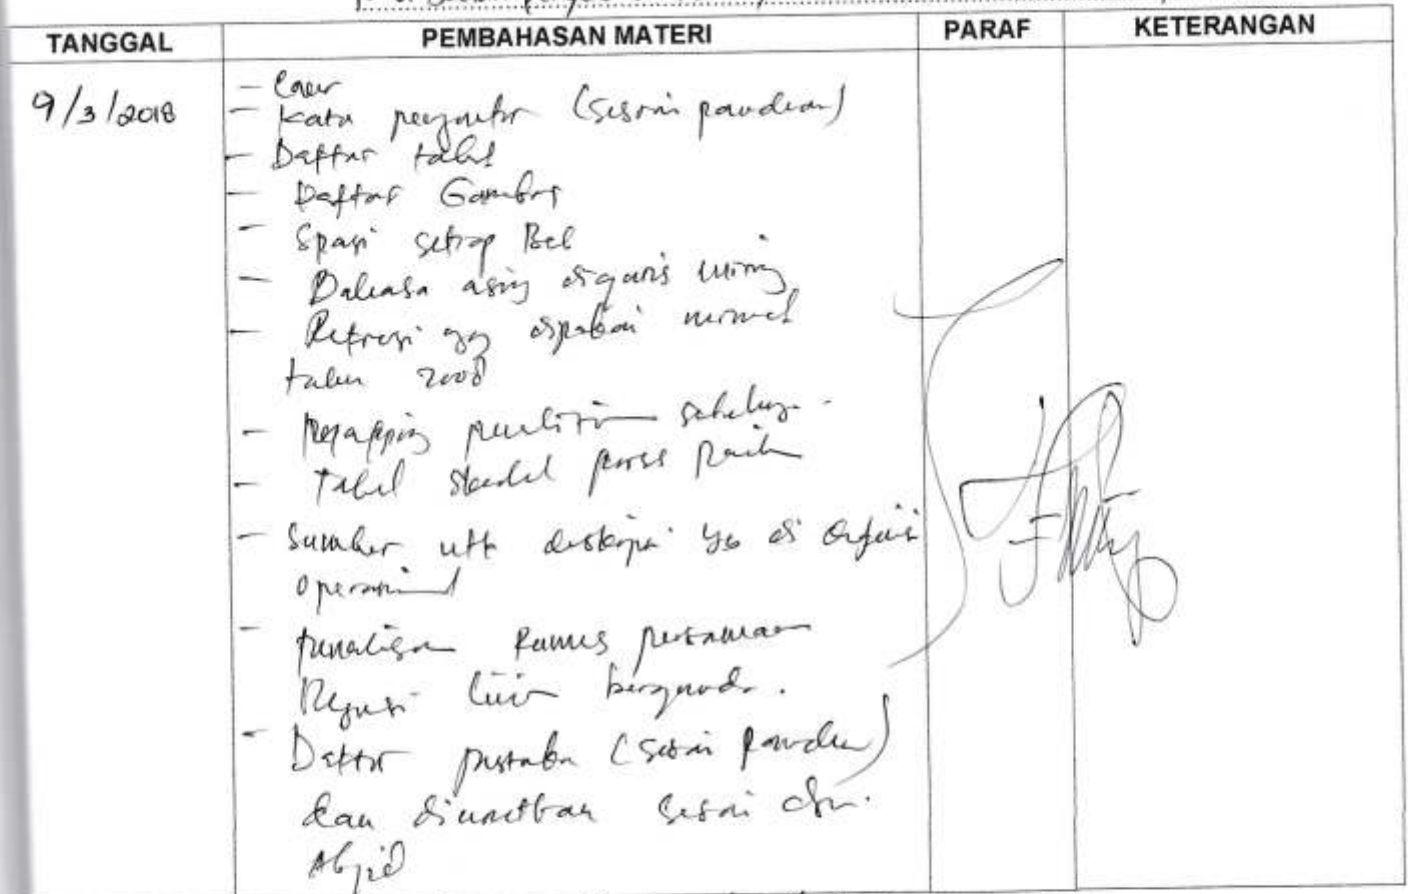 TANGGAL PEMBAHASAN MATERI PARAF KETERANGAN
9/3/2018
- Cover
- Kata pengantar (sesuai panduan)
- Daftar tabel
- Daftar Gambar
- Spasi setiap Bab
- Bahasa asing digaris miring
- Refrensi yg dipakai minimal
tahun 2008
- penelitian sebelumnya.
- Tabel proses
- Sumber utk deskripsi yg di Definisi
operasional
- penulisan Rumus persamaan
Regresi linier berganda.
- Daftar pustaka (sesuai panduan)
dan diurutkan sesuai dgn.
Abjad